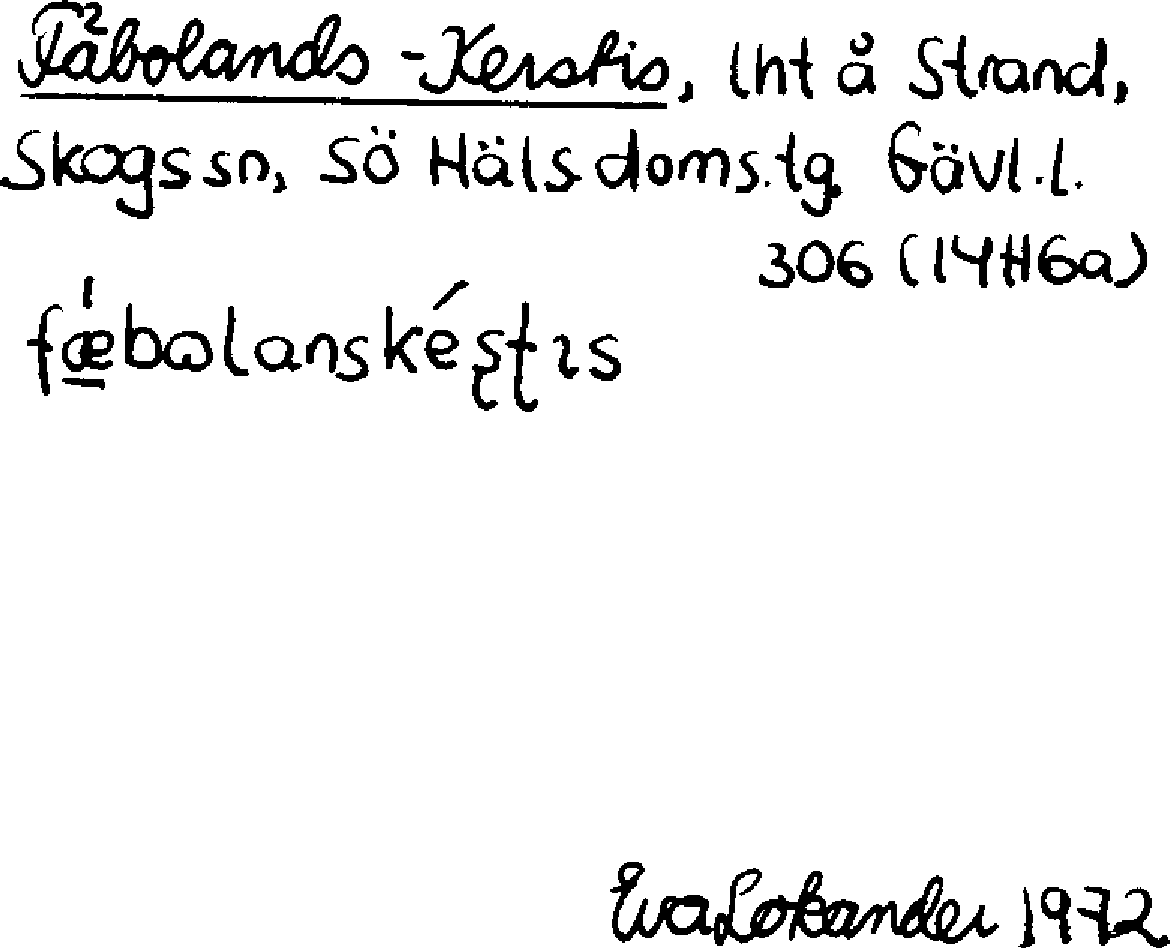 Fäbolands-Kerstis, lht å Strand,
Skogs sn, Sö Häls doms.tg. Gävl.l.
306 (14H6a)
fǽbωlanskéʂʈɪs
Eva Lokander 1972